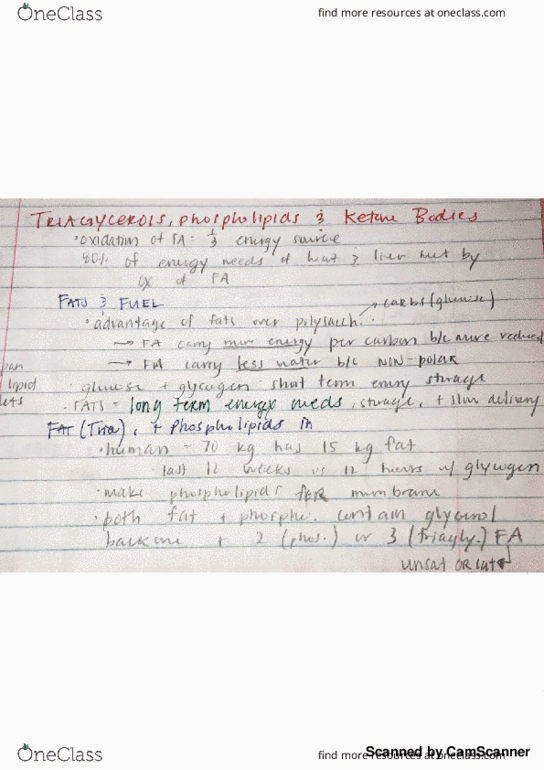 OneClass
find more resources at oneclass.com
TRIAGYCEROIS, phospholipids & Ketone Bodies
• oxidation of FA = 1/3 energy source
80% of energy needs of heat & liver met by
ox of FA
FATS & FUEL
→ carbs (glucose)
• advantage of fats over polysacch.
→ FA carry more energy per carbon b/c more reduced
→ FA carry less water b/c NON-polar
lipid
• glucose + glycogen: short term energy storage
• FATS = long term energy needs, storage, + slow delivery
FAT (Tria), + Phospholipids in
• human - 70 kg has 15 kg fat
last 12 weeks vs 12 hours w/ glycogen
• make phospholipids FOR membrane
• both fat + phospho. contain glycerol
backone + 2 (phos.) or 3 (triagly.) FA
unsat OR sat
OneClass
find more resources at oneclass.com
Scanned by CamScanner